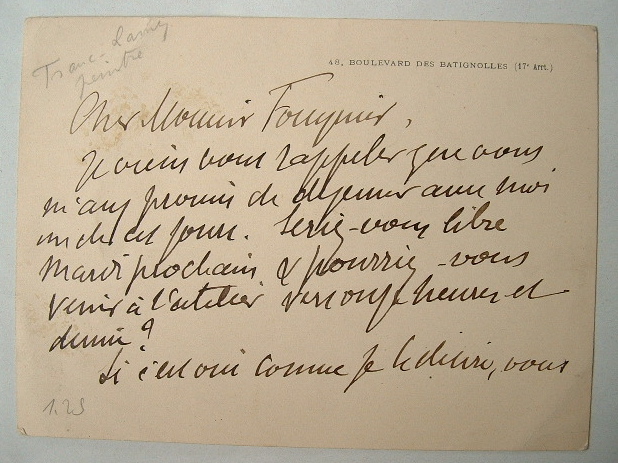 Franc-Lamy
peintre
48, BOULEVARD DES BATIGNOLLES (17e Arrt.)
Cher Monsieur Fouquier,
Je viens vous rappeler que vous
m'avez promis de dejeuner avec moi
un de ces jours. Seriez-vous libre
Mardi prochain & pourriez-vous
venir à l'atelier vers onze heures et
demie?
Si c'est oui comme je le désire, vous
1.25